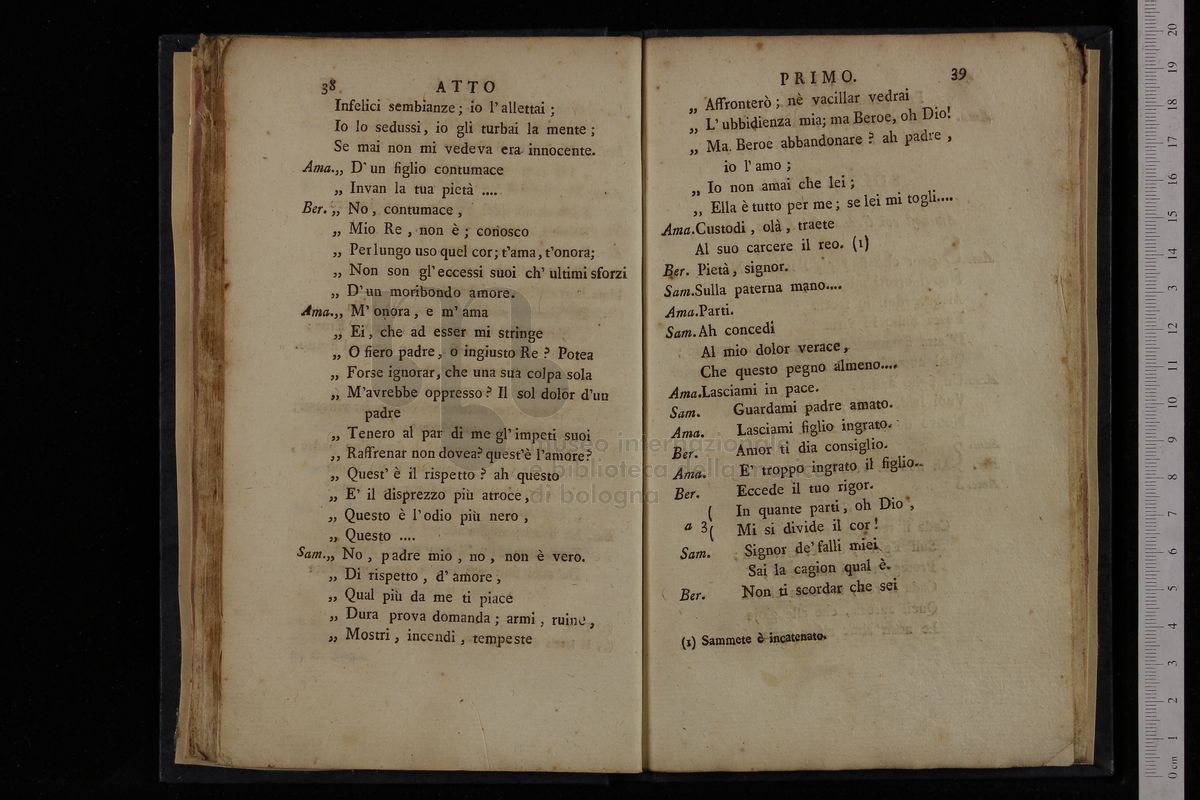 38 ATTO
Infelici sembianze; io l'allettai;
Io lo sedussi, io gli turbai la mente;
Se mai non mi vedeva era innocente.
Ama.,, D'un figlio contumace
,, Invan la tua pietà ....
Ber. ,, No, contumace,
,, Mio Re, non è; conosco
,, Per lungo uso quel cor; t'ama, t'onora;
,, Non son gl'eccessi suoi ch'ultimi sforzi
,, D'un moribondo amore.
Ama.,, M'onora, e m'ama
,, Ei, che ad esser mi stringe
,, O fiero padre, o ingiusto Re? Potea
,, Forse ignorar, che una sua colpa sola
,, M'avrebbe oppresso? Il sol dolor d'un
padre
,, Tenero al par di me gl'impeti suoi
,, Raffrenar non dovea? quest'è l'amore?
,, Quest'è il rispetto? ah questo
,, E' il disprezzo più atroce,
,, Questo è l'odio più nero,
,, Questo ....
Sam.,, No, padre mio, no, non è vero.
,, Di rispetto, d'amore,
,, Qual più da me ti piace
,, Dura prova domanda; armi, ruine,
,, Mostri, incendi, tempeste
PRIMO. 39
,, Affronterò; nè vacillar vedrai
,, L'ubbidienza mia; ma Beroe, oh Dio!
,, Ma Beroe abbandonare? ah padre,
io l'amo;
,, Io non amai che lei;
,, Ella è tutto per me; se lei mi togli....
Ama.Custodi, olà, traete
Al suo carcere il reo. (1)
Ber. Pietà, signor.
Sam.Sulla paterna mano....
Ama.Parti.
Sam.Ah concedi
Al mio dolor verace,
Che questo pegno almeno....
Ama.Lasciami in pace.
Sam. Guardami padre amato.
Ama. Lasciami figlio ingrato.
Ber. Amor ti dia consiglio.
Ama. E' troppo ingrato il figlio..
Ber. Eccede il tuo rigor.
( In quante parti, oh Dio,
a 3( Mi si divide il cor!
Sam. Signor de' falli miei
Sai la cagion qual è.
Ber. Non ti scordar che sei
(1) Sammete è incatenato.
museo internazionale
e biblioteca della
di bologna
0 cm 1 2 3 4 5 6 7 8 9 10 11 12 13 14 15 16 17 18 19 20